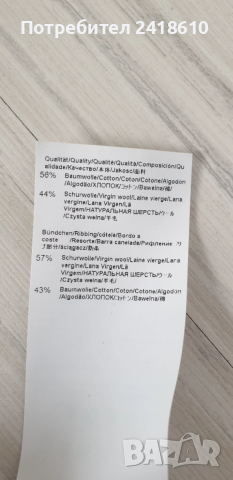 Потребител 2418610
Qualität/Quality/Qualité/Qualita/Composición/Qu
alidade/Качество/本体/Jakosc/面料
56% Baumwolle/Cotton/Coton/Cotone/Algodon
/Algodão/ХЛОПОК/コットン/Bawełna/棉/
44% Schurwolle/Virgin wool/Laine vierge/Lana
vergine/Lana Virgen/Lã
Virgem/НАТУРАЛЬНАЯ ШЕРСТЬ/ウール
/Czysta wełna/羊毛/
Bündchen/Ribbing/côtele/Bordo a
coste /Resorte/Barra canelada/Рифление /リ
ブ部分/ściągacz/
57% Schurwolle/Virgin wool/Laine vierge/Lana
vergine/Lana Virgen/Lã
Virgem/НАТУРАЛЬНАЯ ШЕРСТЬ/ウール
/Czysta wełna/羊毛/
43% Baumwolle/Cotton/Coton/Cotone/Algodon
/Algodão/ХЛОПОК/コットン/Bawełna/棉/
BAZAR
bg